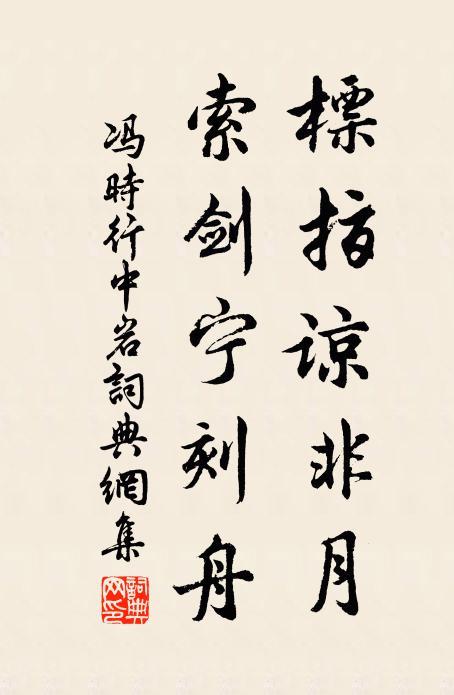 標指谅非月
索剑宁刻舟
冯時行中岩詞典網集
詞典网印